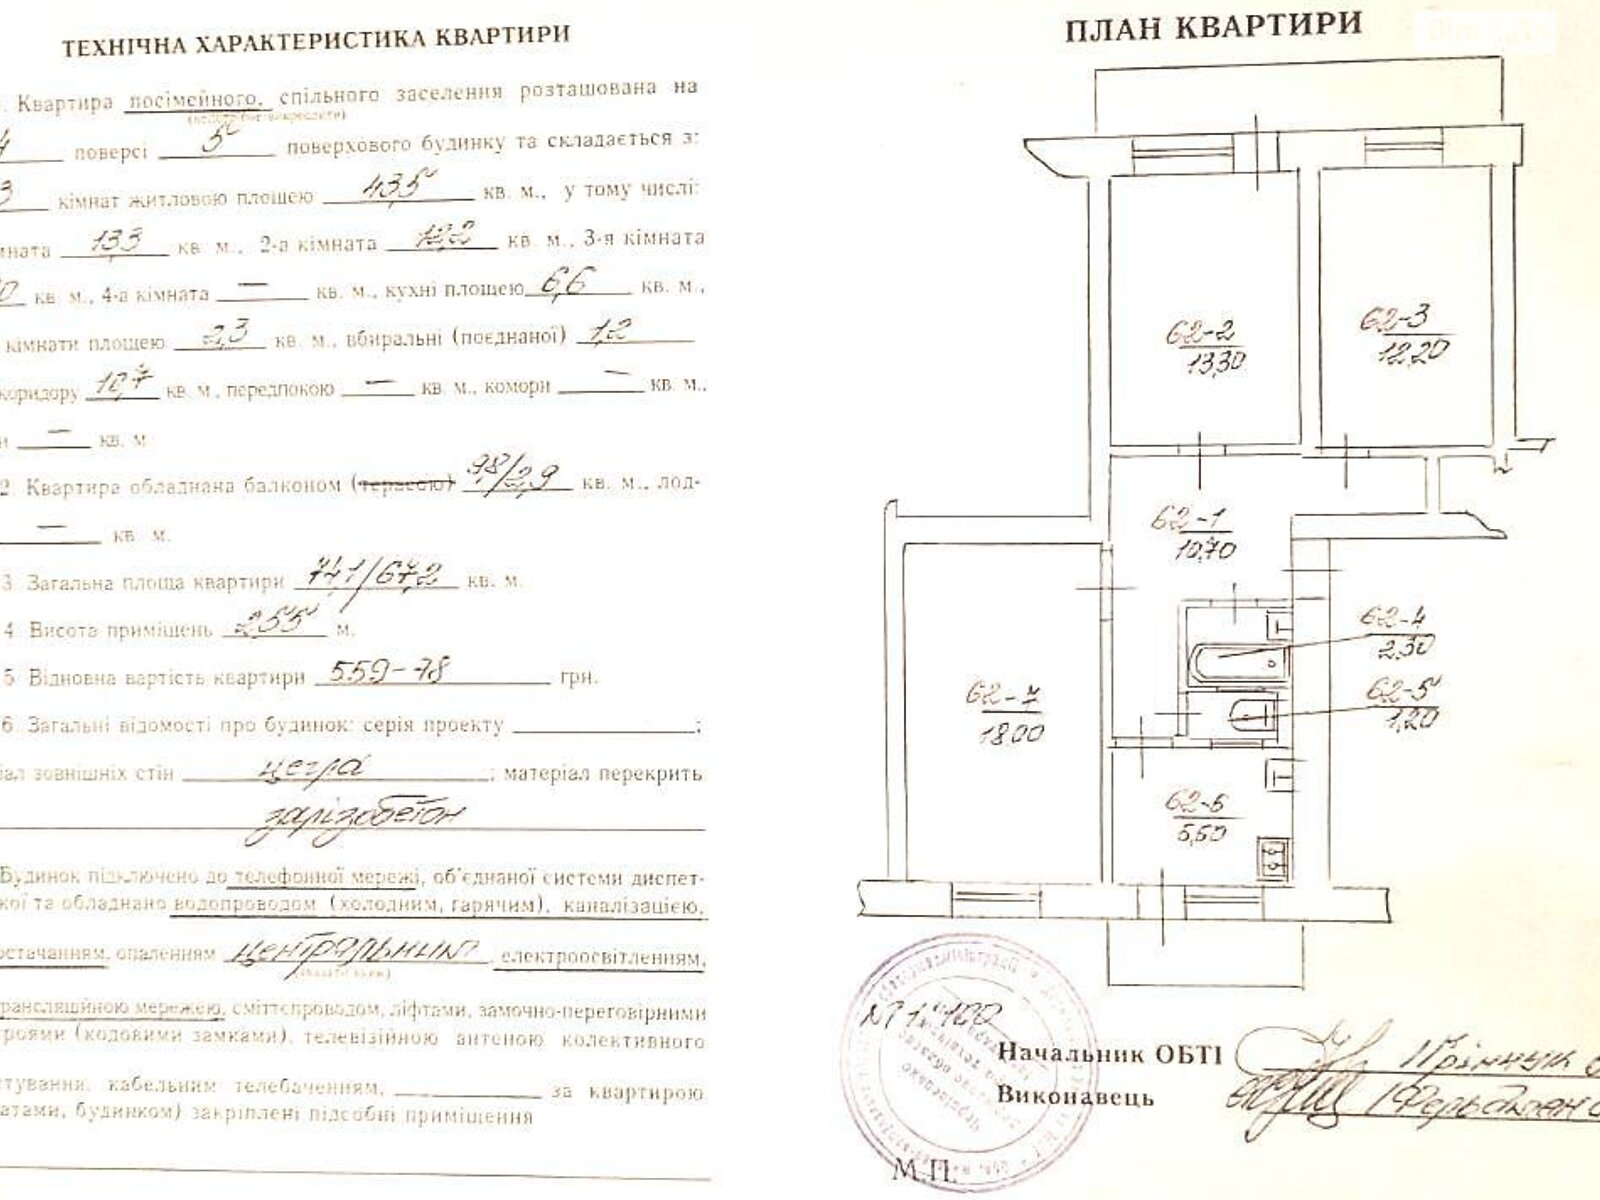 ТЕХНІЧНА ХАРАКТЕРИСТИКА КВАРТИРИ
Квартира посімейного, спільного заселення розташована на
4 поверсі 5 поверхового будинку та складається з:
3 кімнат житловою площею 43,5 кв. м., у тому числі:
мната 13,3 кв. м., 2-а кімната 12,2 кв. м., 3-я кімната
0 кв. м., 4-а кімната — кв. м., кухні площею 6,6 кв. м.,
кімнати площею 2,3 кв. м., вбиральні (поєднаної) 1,2
коридору 10,7 кв. м., передпокою — кв. м., комори — кв. м.,
и — кв. м
2. Квартира обладнана балконом (терасою) 9,8/2,9 кв. м., лод-
— кв. м.
3. Загальна площа квартири 74,1/67,2 кв. м.
4. Висота приміщень 2,55 м.
5. Відновна вартість квартири 559-78 грн.
6. Загальні відомості про будинок: серія проекту ;
іал зовнішніх стін цегла ; матеріал перекрить
залізобетон
Будинок підключено до телефонної мережі, об'єднаної системи диспет-
кої та обладнано водопроводом (холодним, гарячим), каналізацією,
остачанням, опаленням центральним, електроосвітленням,
трансляційною мережею, сміттєпроводом, ліфтами, замочно-переговірними
роями (кодовими замками), телевізійною антеною колективного
стування, кабельним телебаченням, за квартирою
атами, будинком) закріплені підсобні приміщення
ПЛАН КВАРТИРИ
62-2
13,30
62-3
12,20
62-1
10,70
62-4
2,30
62-5
1,20
62-7
18,00
62-6
6,60
М 1:100
Начальник ОБТІ
Виконавець
М.П.